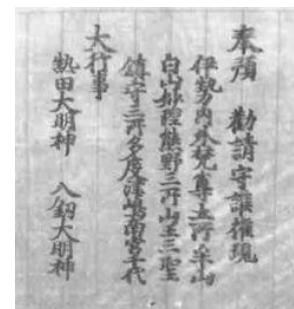 奉預 勧請守護権現
伊勢内外梵尊五所平山
白山妙理熊野三所山王三聖
鎮守三所多度津嶋南宮千代
大行事
熱田大明神 八剱大明神